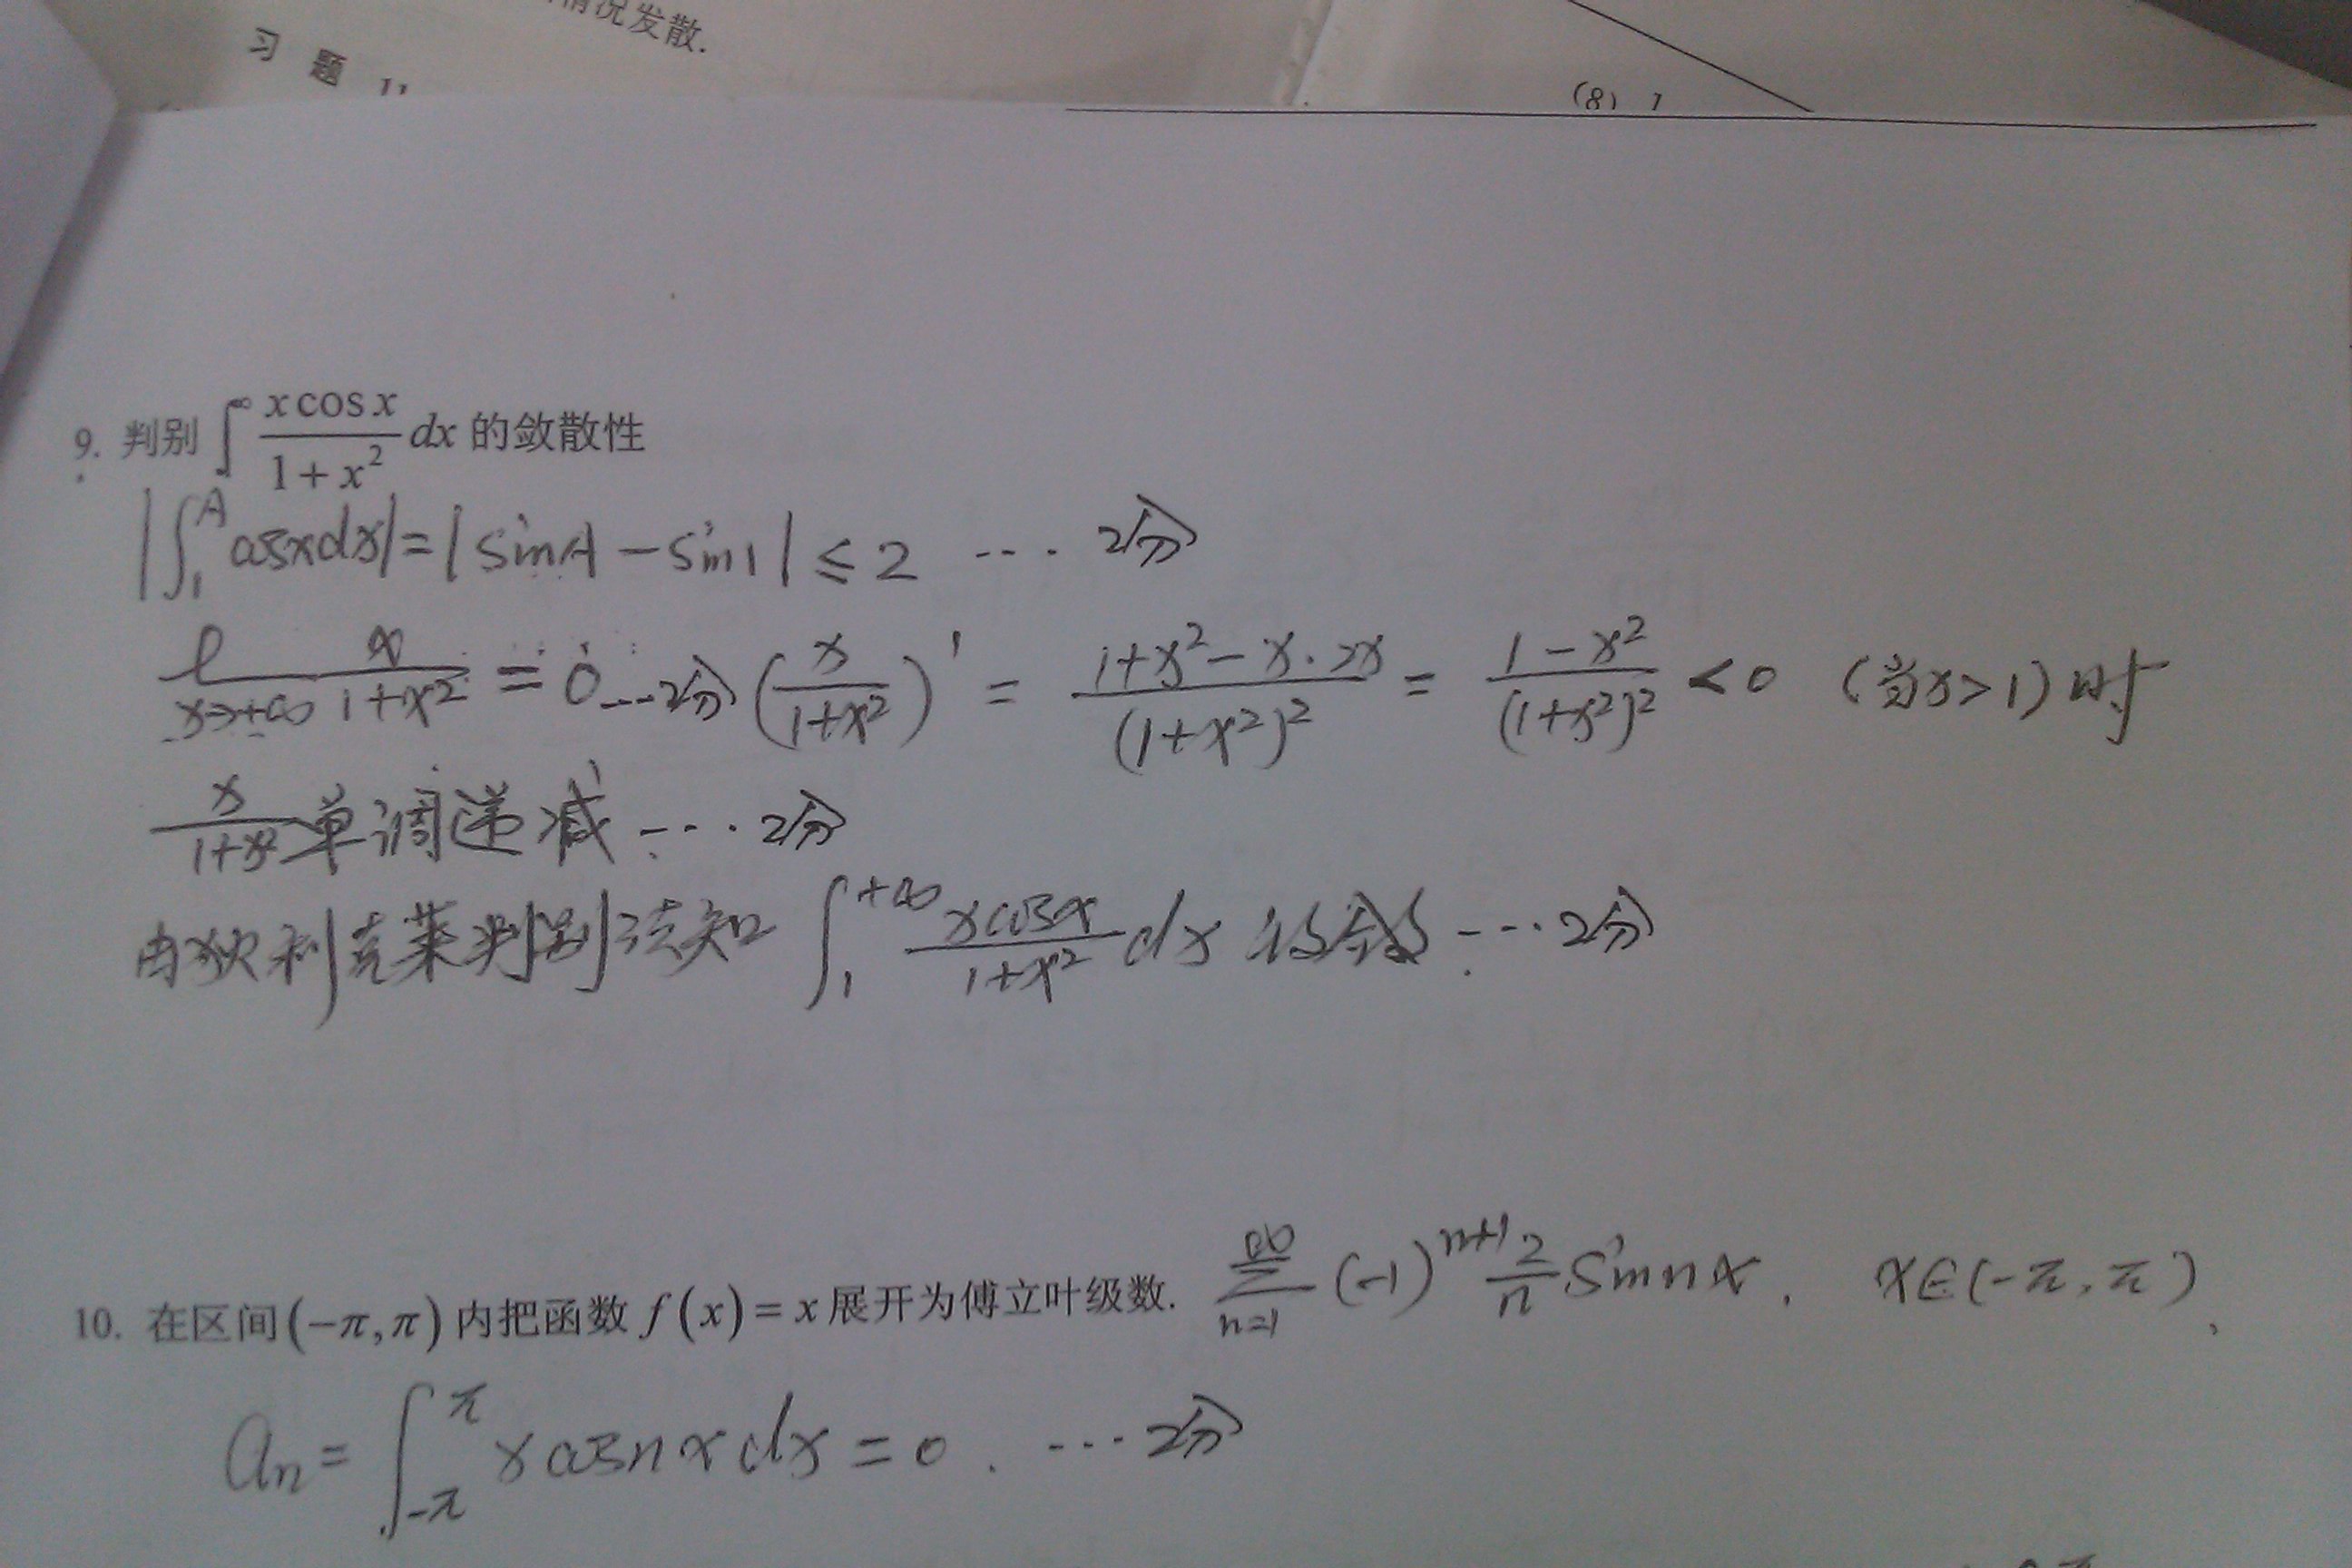 情况发散.
习 题 11
(8) 1
9. 判别 ∫^∞ x cos x / (1 + x²) dx 的敛散性
|∫₁^A cosxdx| = |sinA − sin1| ≤ 2 ... 2分
l x→+∞ x/(1+x²) = 0 ... 2分 (x/(1+x²))' = (1+x²−x·2x)/(1+x²)² = (1−x²)/(1+x²)² < 0 (当x>1) 时
x/(1+x²) 单调递减 ... 2分
由狄利克莱判别法知 ∫₁^{+∞} xcosx/(1+x²) dx 收敛 ... 2分
10. 在区间(−π,π)内把函数 f(x) = x 展开为傅立叶级数. ∑_{n=1}^{∞} (−1)^{n+1} 2/n sin nx , x∈(−π,π),
aₙ = ∫_{−π}^{π} x cosnx dx = 0 . ... 2分